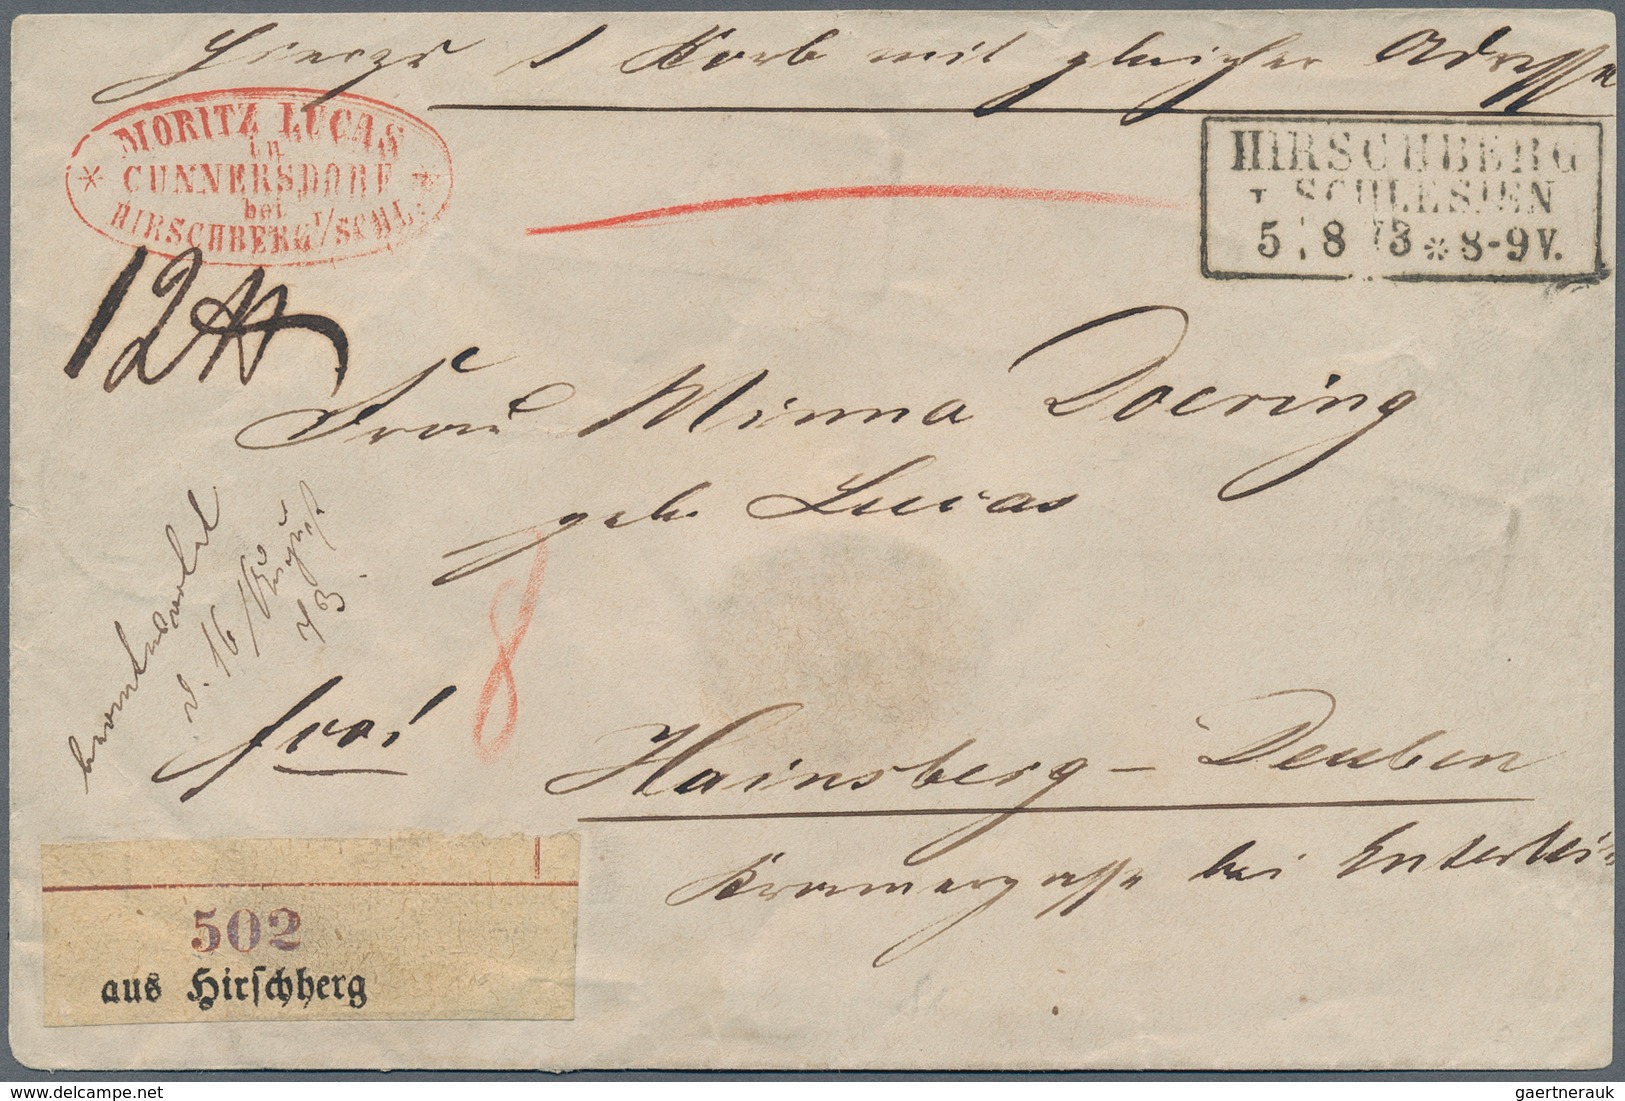 Hierzu 1 Korb mit gleicher Adresse
MORITZ LUCAS
in
CUNNERSDORF
bei
HIRSCHBERG I/SCHL.
HIRSCHBERG
I. SCHLESIEN
5 8 73 * 8-9 V.
12 ℔
Frau Minna Doering
geb. Lucas
beantwortet
d. 16 August
73.
8
frco!
Hainsberg - Deuben
Kramergasse bei Enterlein
502
aus Hirschberg
gaertnerauk